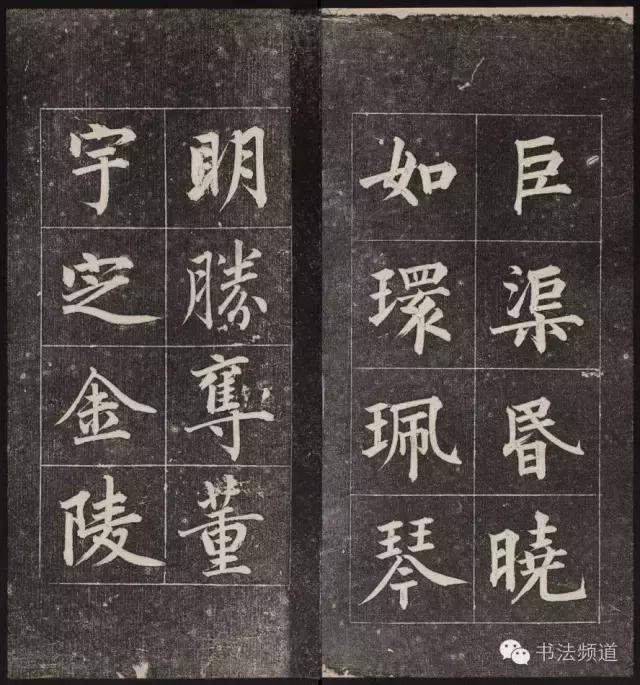 巨渠昬曉
如環珮琴
明勝奪董
宇定金陵
书法频道